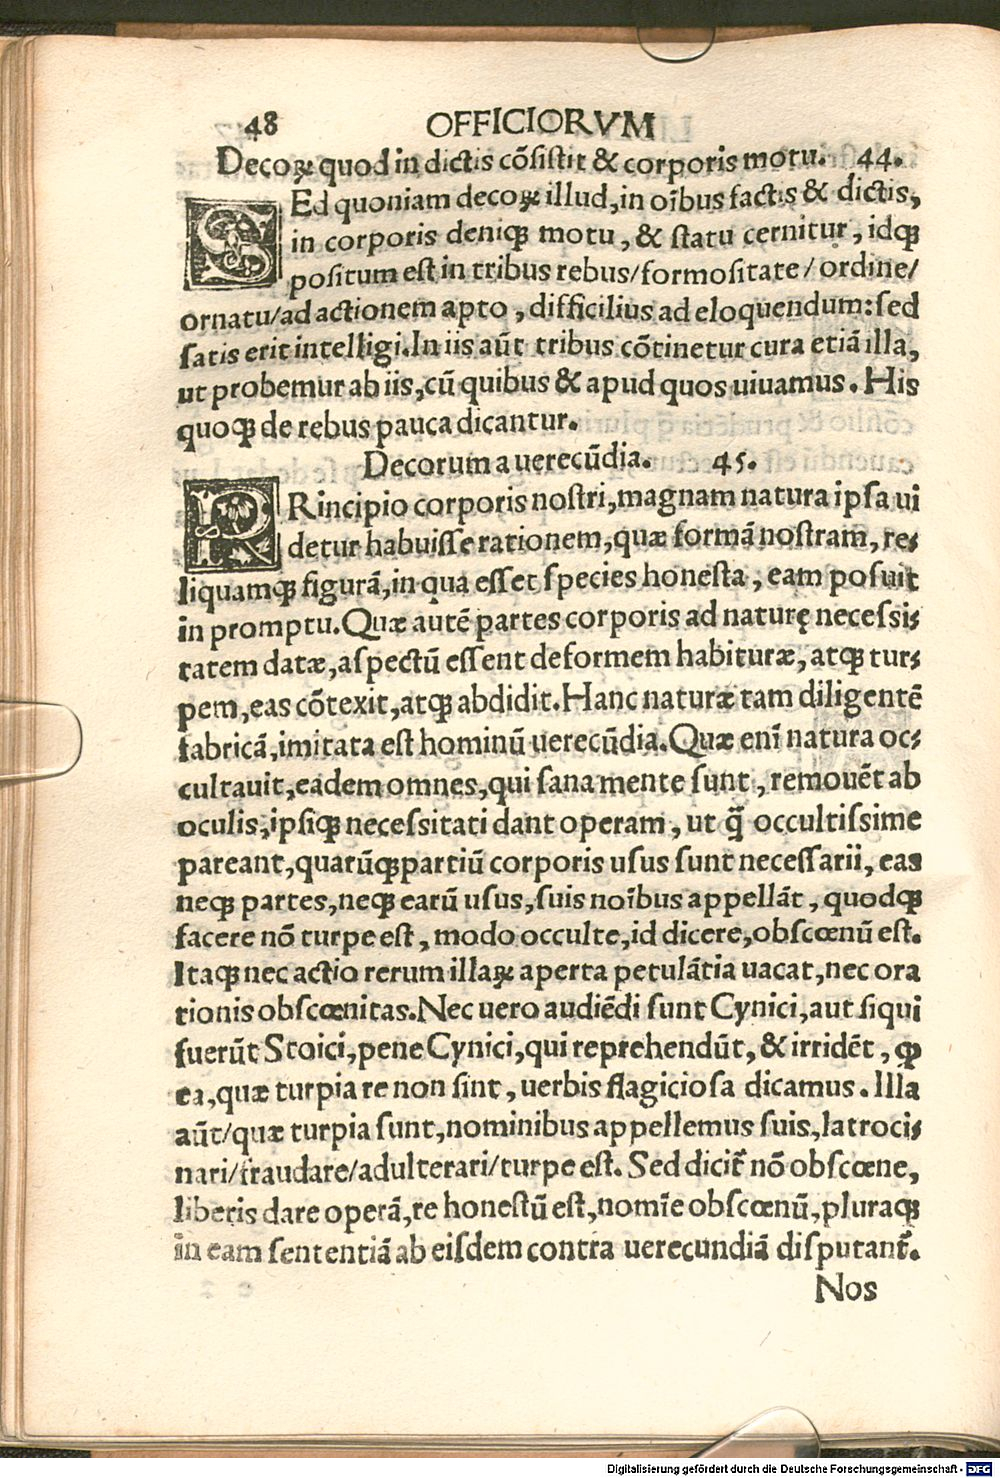 48 OFFICIORVM
Decoꝝ quod in dictis cõsistit & corporis motu. 44.
SEd quoniam decoꝝ illud, in oĩbus factis & dictis,
in corporis deniqꝫ motu, & statu cernitur, idqꝫ
positum est in tribus rebus/formositate/ordine/
ornatu/ad actionem apto, difficilius ad eloquendum: sed
satis erit intelligi. In iis aũt tribus cõtinetur cura etiã illa,
ut probemur ab iis, cũ quibus & apud quos uiuamus. His
quoqꝫ de rebus pauca dicantur.
Decorum a uerecũdia. 45.
PRincipio corporis nostri, magnam natura ipsa ui
detur habuisse rationem, quæ formã nostram, re⸗
liquamqꝫ figurã, in qua esset species honesta, eam posuit
in promptu. Quæ autẽ partes corporis ad naturę necessi⸗
tatem datæ, aspectũ essent deformem habituræ, atqꝫ tur⸗
pem, eas cõtexit, atqꝫ abdidit. Hanc naturæ tam diligentẽ
fabricã, imitata est hominũ uerecũdia. Quæ enĩ natura oc⸗
cultauit, eadem omnes, qui sana mente sunt, remouẽt ab
oculis, ipsiqꝫ necessitati dant operam, ut q̃ occultissime
pareant, quarũqꝫ partiũ corporis usus sunt necessarii, eas
neqꝫ partes, neqꝫ earũ usus, suis noĩbus appellãt, quodqꝫ
facere nõ turpe est, modo occulte, id dicere, obscœnũ est.
Itaqꝫ nec actio rerum illaꝝ aperta petulãtia uacat, nec ora
tionis obscœnitas. Nec uero audiẽdi sunt Cynici, aut siqui
fuerũt Stoici, pene Cynici, qui reprehendũt, & irridẽt, ꝙ
ea, quæ turpia re non sint, uerbis flagiciosa dicamus. Illa
aũt/quæ turpia sunt, nominibus appellemus suis, latroci⸗
nari/fraudare/adulterari/turpe est. Sed dicit̃ nõ obscœne,
liberis dare operã, re honestũ est, nomĩe obscœnũ, pluraqꝫ
in eam sententiã ab eisdem contra uerecundiã disputant̃.
Nos
Digitalisierung gefördert durch die Deutsche Forschungsgemeinschaft - DFG